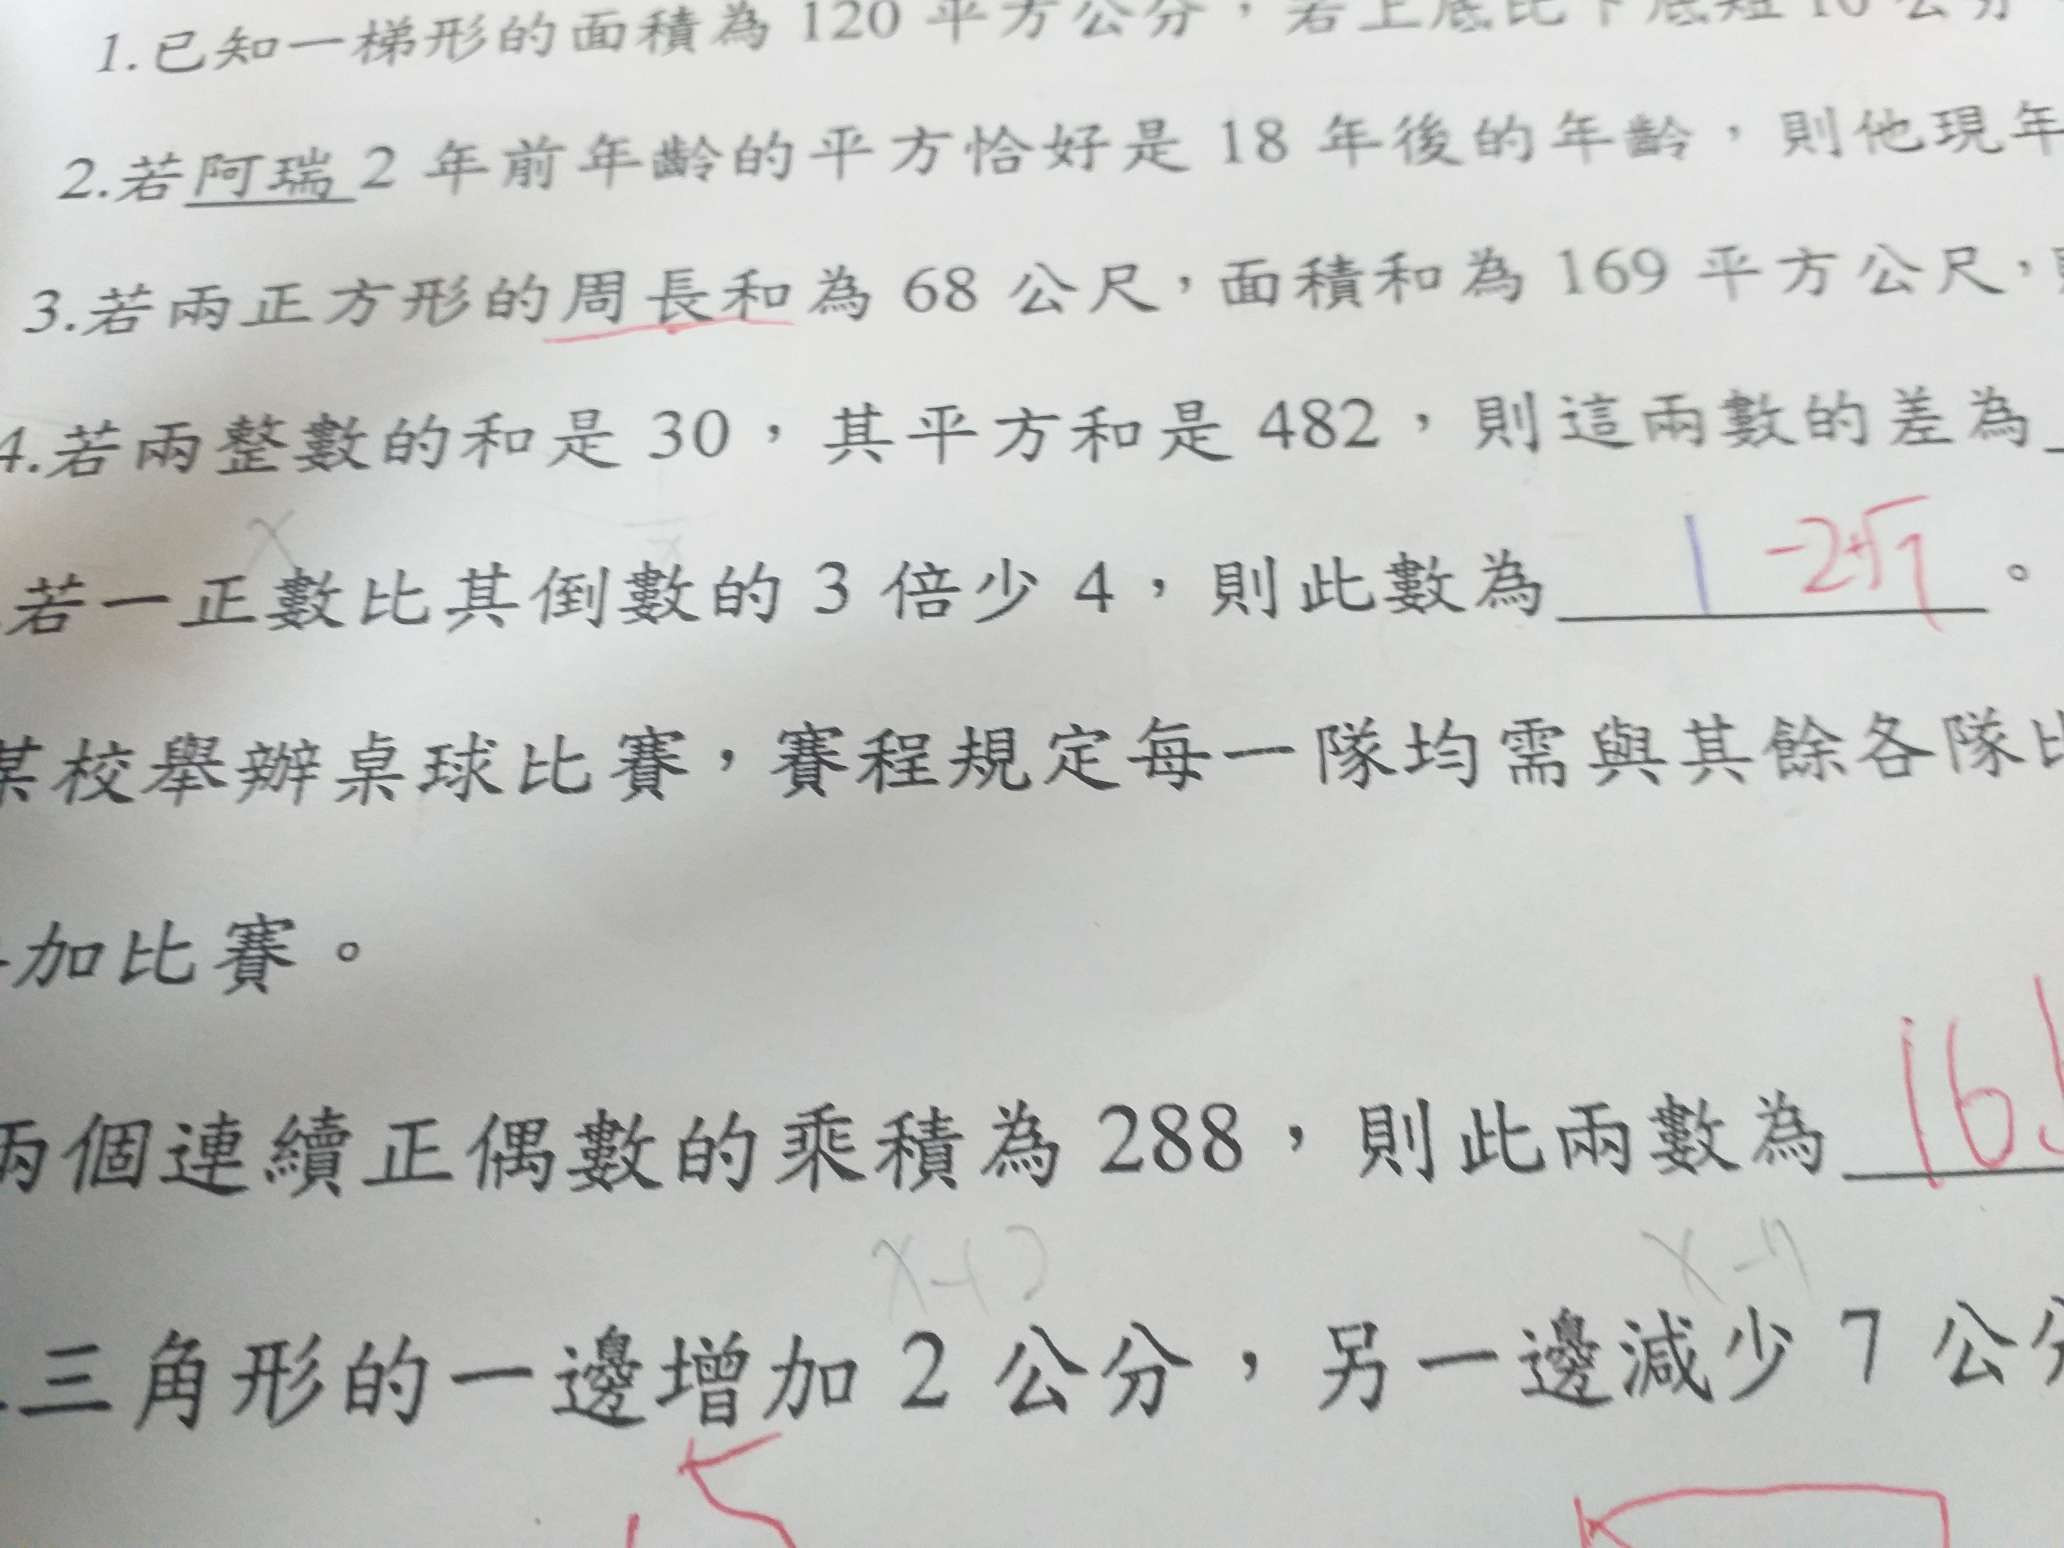 1.已知一梯形的面積為 120 平方公分，若上底比下底短 10 公分
2.若阿瑞 2 年前年齡的平方恰好是 18 年後的年齡，則他現年
3.若兩正方形的周長和為 68 公尺，面積和為 169 平方公尺，
4.若兩整數的和是 30，其平方和是 482，則這兩數的差為
x
若一正數比其倒數的 3 倍少 4，則此數為 1 -2+√7 。
某校舉辦桌球比賽，賽程規定每一隊均需與其餘各隊比
加比賽。
兩個連續正偶數的乘積為 288，則此兩數為 16
x+2 x-7
三角形的一邊增加 2 公分，另一邊減少 7 公分